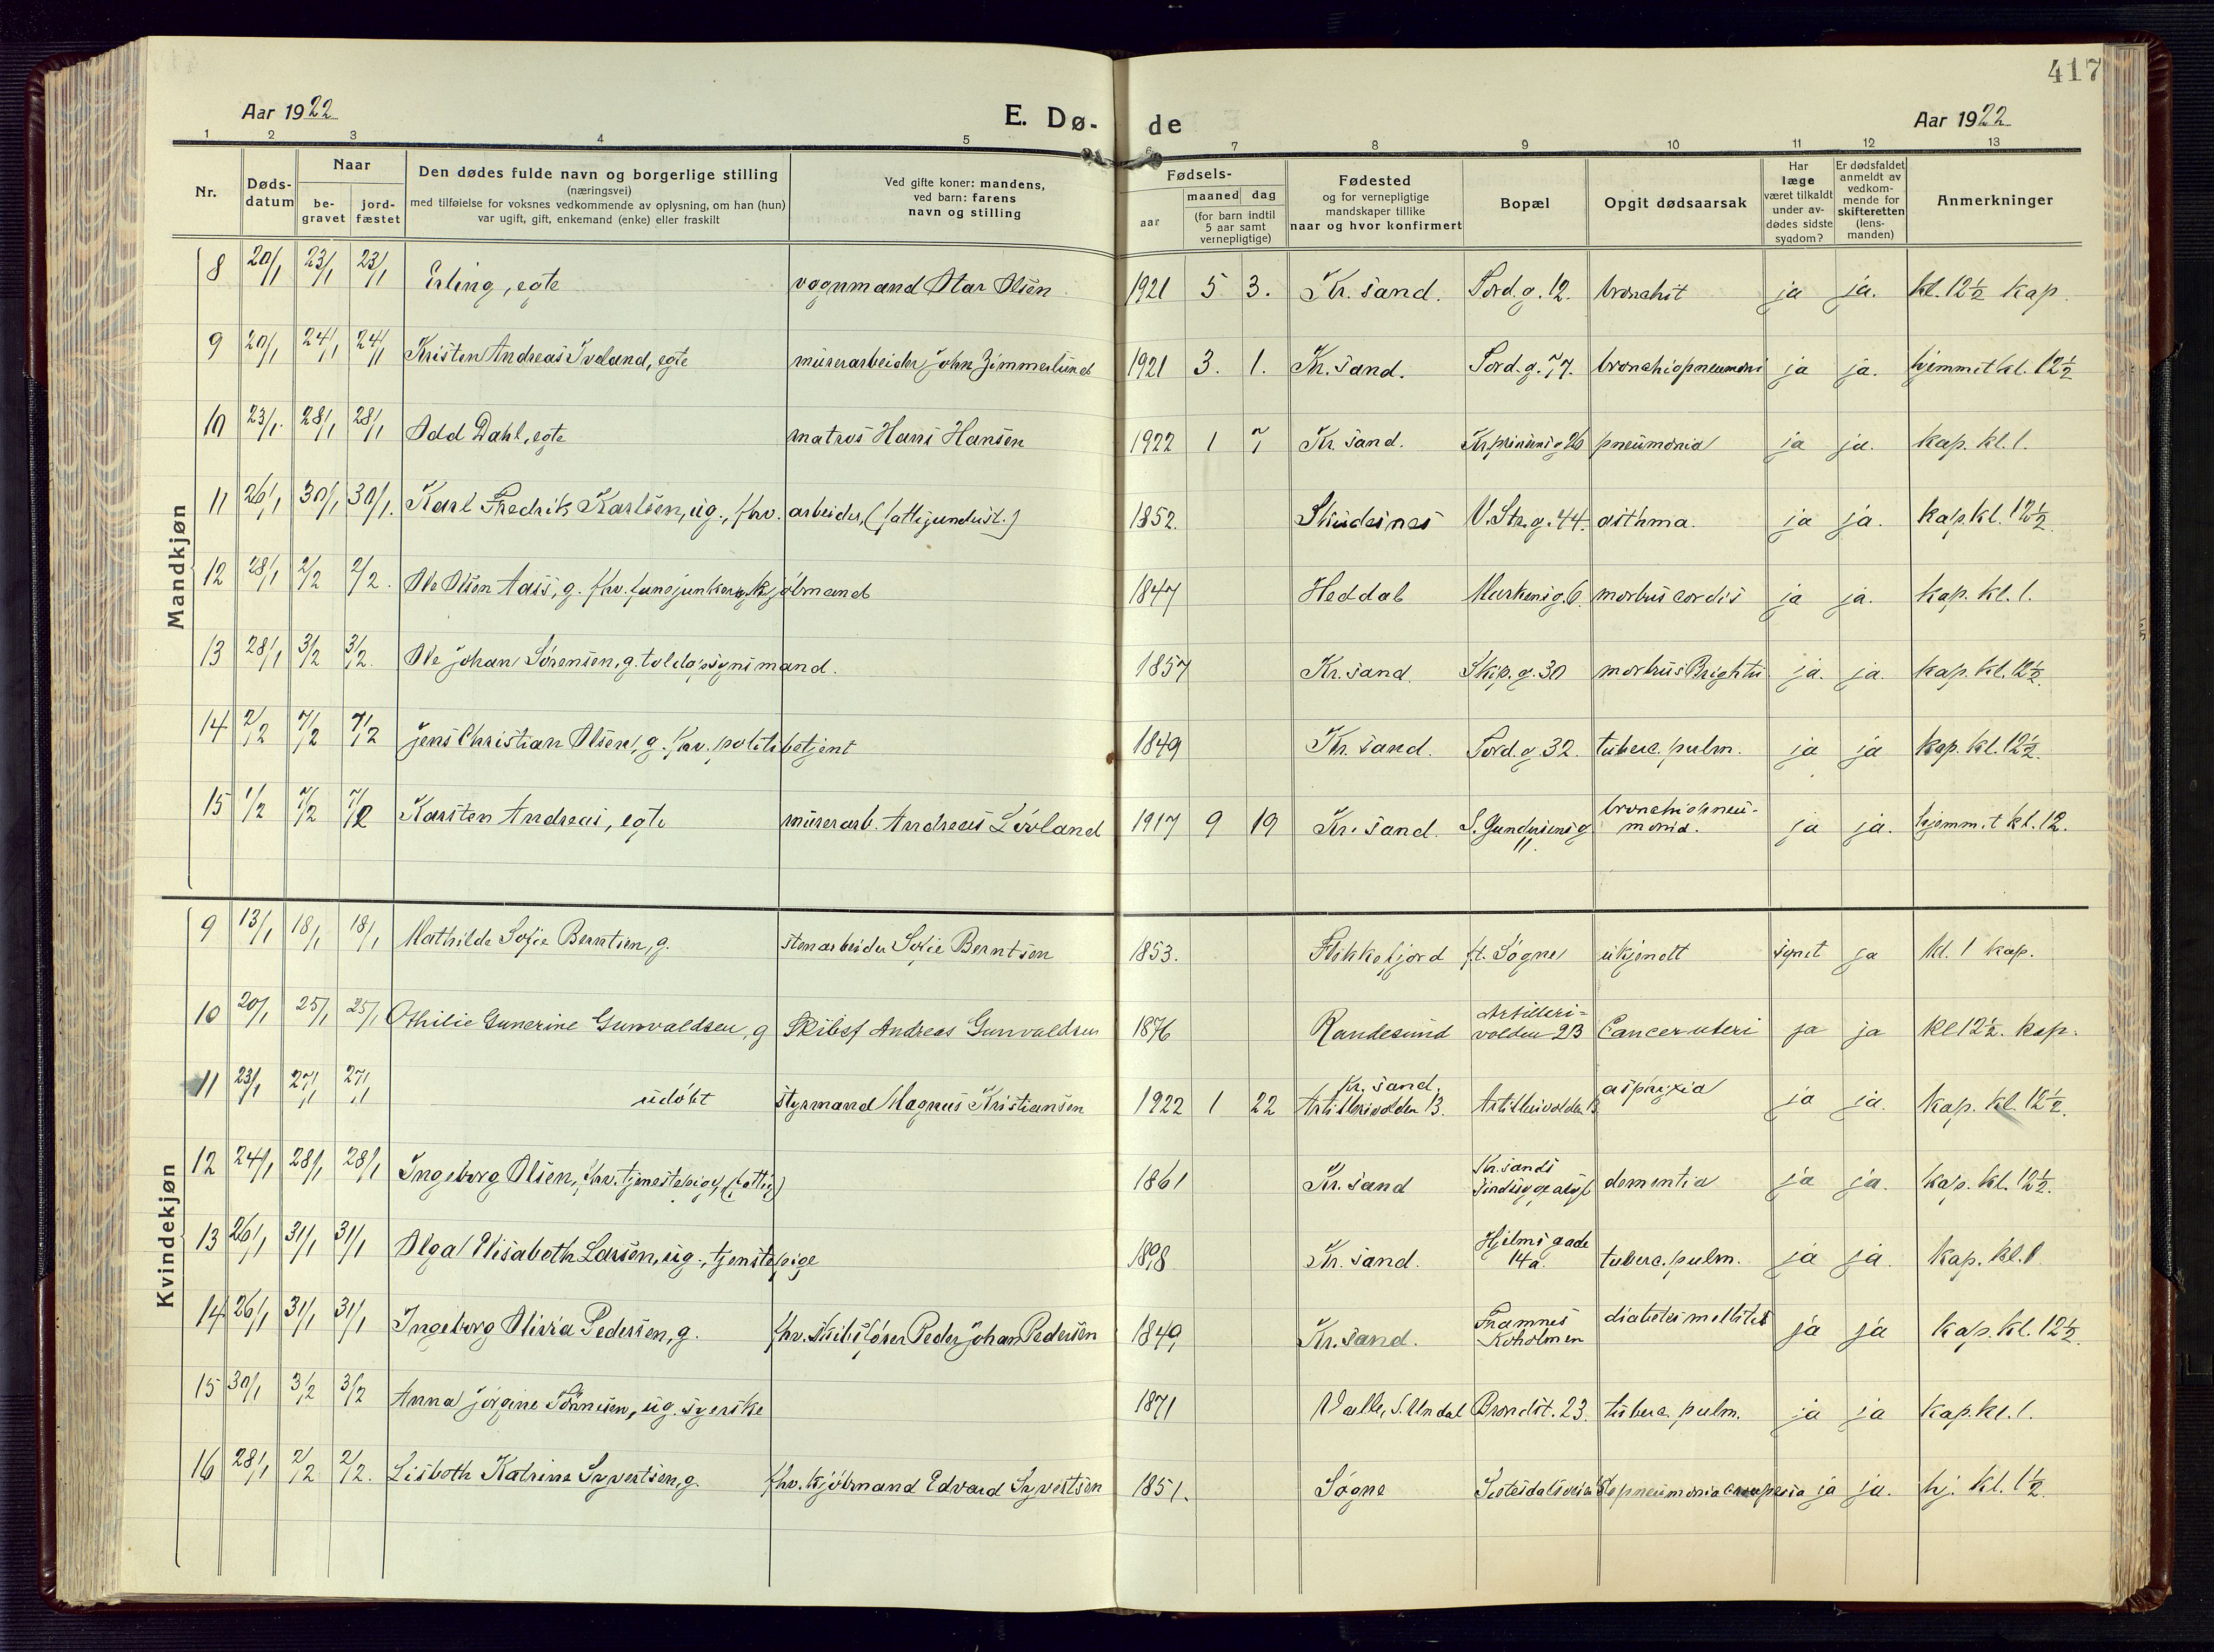 417
Aar 1922 E. Dø- de Aar 1922
1 2 3 4 5 6 7 8 9 10 11 12 13
Nr.
Døds-
datum
Naar
be-
gravet
jord-
fæstet
Den dødes fulde navn og borgerlige stilling
(næringsvei)
med tilføielse for voksnes vedkommende av oplysning, om han (hun)
var ugift, gift, enkemand (enke) eller fraskilt
Ved gifte koner: mandens,
ved barn: farens
navn og stilling
Fødsels-
aar
maaned dag
(for barn indtil
5 aar samt
vernepligtige)
Fødested
og for vernepligtige
mandskaper tillike
naar og hvor konfirmert
Bopæl
Opgit dødsaarsak
Har
læge
været tilkaldt
under av-
dødes sidste
sygdom?
Er dødsfaldet
anmeldt av
vedkom-
mende for
skifteretten
(lens-
manden)
Anmerkninger
Mandkjøn
8 20/1 23/1 23/1 Erling, egte vognmand Olar Olsen 1921 5 3. Kr. sand. Tord. g. 12. bronchit ja ja. kl. 12½ kap.
9 20/1 24/1 24/1 Kristen Andreas Iveland, egte murerarbeider John Zimmerlund 1921 3. 1. Kr. sand. Tord. g. 77. bronchiopneumoni ja ja. hjemmet kl. 12½
10 23/1. 28/1 28/1 Odd Dahl, egte matros Hans Hansen 1922 1 7 Kr. sand. Kr.prinsensg 26 pneumonia ja ja. kap. kl. 1.
11 26/1 30/1 30/1. Karl Fredrik Karlsen, ug., fhv. arbeider, (fattigunderst.) 1852. Skudesnes V. Str. g. 44. asthma. ja ja. kap. kl. 12½
12 28/1 2/2 2/2. Ole Olsen Aass, g. fhv. fanejunker og kjøbmand 1847 Heddal Markensg. 6. morbus cordis ja ja. kap. kl. 1.
13 28/1 3/2 3/2. Ole Johan Sørensen, g. toldopsynsmand. 1857 Kr. sand. Skip. g. 30 morbus Brightii ja. ja. kap. kl. 12½.
14 2/2 7/2 7/2 Jens Christian Olsen, g. fhv. politibetjent 1849 Kr. sand. Tord. g. 32. tuberc. pulm. ja ja kap. kl. 12½.
15 1/2 7/2 7/2 Karsten Andreas, egte murerarb. Andreas Løvland 1917 9 19 Kr. sand. S. Gundersensg 11. bronchiopneu-
monia. ja ja. hjemmet kl. 12.
Kvindekjøn
9 13/1 18/1 18/1 Mathilde Sofie Berntsen, g. stenarbeider Sofie Berntsen 1853. Flekkefjord ft. Søgne ukjendt synet ja kl. 1 kap.
10 20/1 25/1 25/1 Othilie Gunerine Gunvaldsen, g Skibsf Andreas Gunvaldsen 1876 Randesund Artilleri=
volden 23 Cancer uteri ja ja kl 12½. kap.
11 23/1 27/1 27/1 udøbt styrmand Magnus Kristiansen 1922 1 22 Kr. sand.
Artillerivolden 13. Artillerivolden 13 asphyxia ja ja. kap. kl. 12½.
12 24/1 28/1 28/1 Ingeborg Olsen, fhv. tjenestepige, (fattig) 1861 Kr. sand Kr.sands
sindsygeasyl dementia ja ja. kap. kl. 12½.
13 26/1 31/1 31/1 Olga Elisabeth Larsen, ug., tjenstepige 1898 Kr. sand. Hjelms gade
14a. tuberc. pulm. ja ja. kap. kl. 1
14 26/1 31/1 31/1 Ingeborg Olivia Pedersen, g. fhv. skibsfører Peder Johan Pedersen 1849 Kr. sand. Framnes
Koholmen diabetes mellitus ja ja kap. kl. 12½.
15 30/1 3/2 3/2 Anna Jørgine Tønnesen, ug. syerske 1871 Valle, S. Undal Brondst. 23. tuberc. pulm. ja ja kap. kl. 1.
16 28/1 2/2 2/2. Lisbeth Katrine Syvertsen, g. fhv. kjøbmand Edvard Syvertsen 1851. Søgne pneumonia ja ja. hj. kl. 1½.